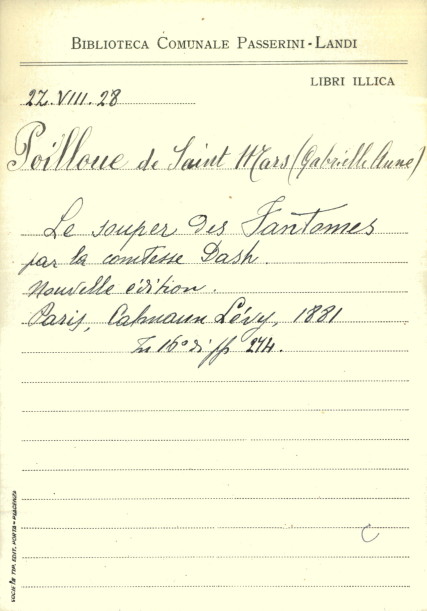 BIBLIOTECA COMUNALE PASSERINI-LANDI
LIBRI ILLICA
2Z.VIII.28
Poilloue de Saint Mars (Gabrielle Anne)
Le souper des Fantomes
par la comtesse Dash.
Nouvelle édition.
Paris, Calmann Lévy, 1881
In 16° di pp 274.
C